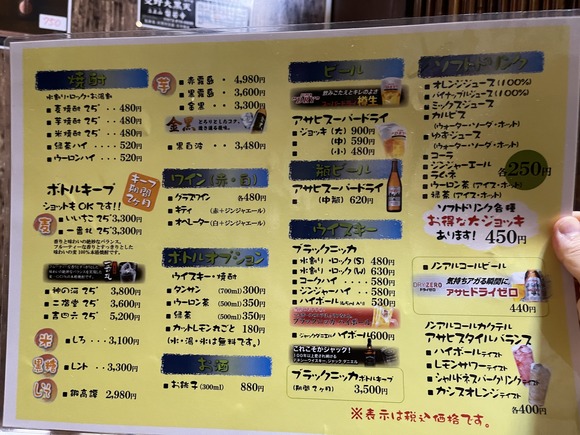 焼酎
水割り・ロック・お湯割
麦焼酎 25° ・・ 480円
芋焼酎 25° ・・ 480円
米焼酎 25° ・・ 480円
緑茶ハイ ・・・ 520円
ウーロンハイ ・・・ 520円
ボトルキープ
キープ期間2ヶ月
ショットもOKです!!
麦
いいちこ 25° 3,300円
一番札 25° 3,300円
香りと味わいの絶妙なバランス。
神の河 25° 3,800円
二階堂 25° 3,600円
吉四六 25° 5,200円
米
しろ ・・・ 3,100円
黒糖
レント ・・・ 3,300円
しそ
鍛高譚 2,980円
芋
赤霧島 ・ 4,980円
黒霧島 ・ 3,600円
金黒 ・・・ 3,300円
金黒
とろりとしたコク、
黒白波 ・・ 3,480円
ワイン(赤・白)
グラスワイン 各480円
キティ (赤+ジンジャエール)
オペレーター (白+ジンジャエール)
ボトルオプション
ウイスキー・焼酎
タンサン (700ml) 300円
ウーロン茶 (500ml) 350円
緑茶 (500ml) 350円
カットレモン丸ごと 180円
(水・湯・氷は無料です。)
お酒
お銚子 (300ml) 880円
ビール
飲みごたえとキレのよさ
樽生
アサヒスーパードライ
ジョッキ (大) 900円
(中) 590円
(小) 480円
瓶ビール
アサヒスーパードライ
(中瓶) 620円
ウイスキー
ブラックニッカ
水割り・ロック(S) 480円
水割り・ロック(W) 630円
コークハイ ・・・ 580円
ジンジャーハイ ・・ 580円
ハイボール(レモン入り) 530円
ジャックダニエル ハイボール600円
これこそがジャック!
ブラックニッカ ボトルキープ
(期間2ヶ月) 3,500円
ソフトドリンク
オレンジジュース (100%)
パイナップルジュース (100%)
ミックスジュース
カルピス
(ウォーター・ソーダ・ホット)
ゆずジュース
(ウォーター・ソーダ・ホット)
コーラ
ジンジャーエール
ラムネ
ウーロン茶(アイス・ホット)
緑茶(アイス・ホット)
各250円
ソフトドリンク各種
お得な大ジョッキ
あります! 450円
ノンアルコールビール
DRY ZERO
ドライゼロ
気持ちアガる瞬間に、
アサヒドライゼロ
440円
ノンアルコールカクテル
アサヒスタイルバランス
ハイボールテイスト
レモンサワーテイスト
シャルドネスパークリングテイスト
カシスオレンジテイスト
各400円
※表示は税込価格です。